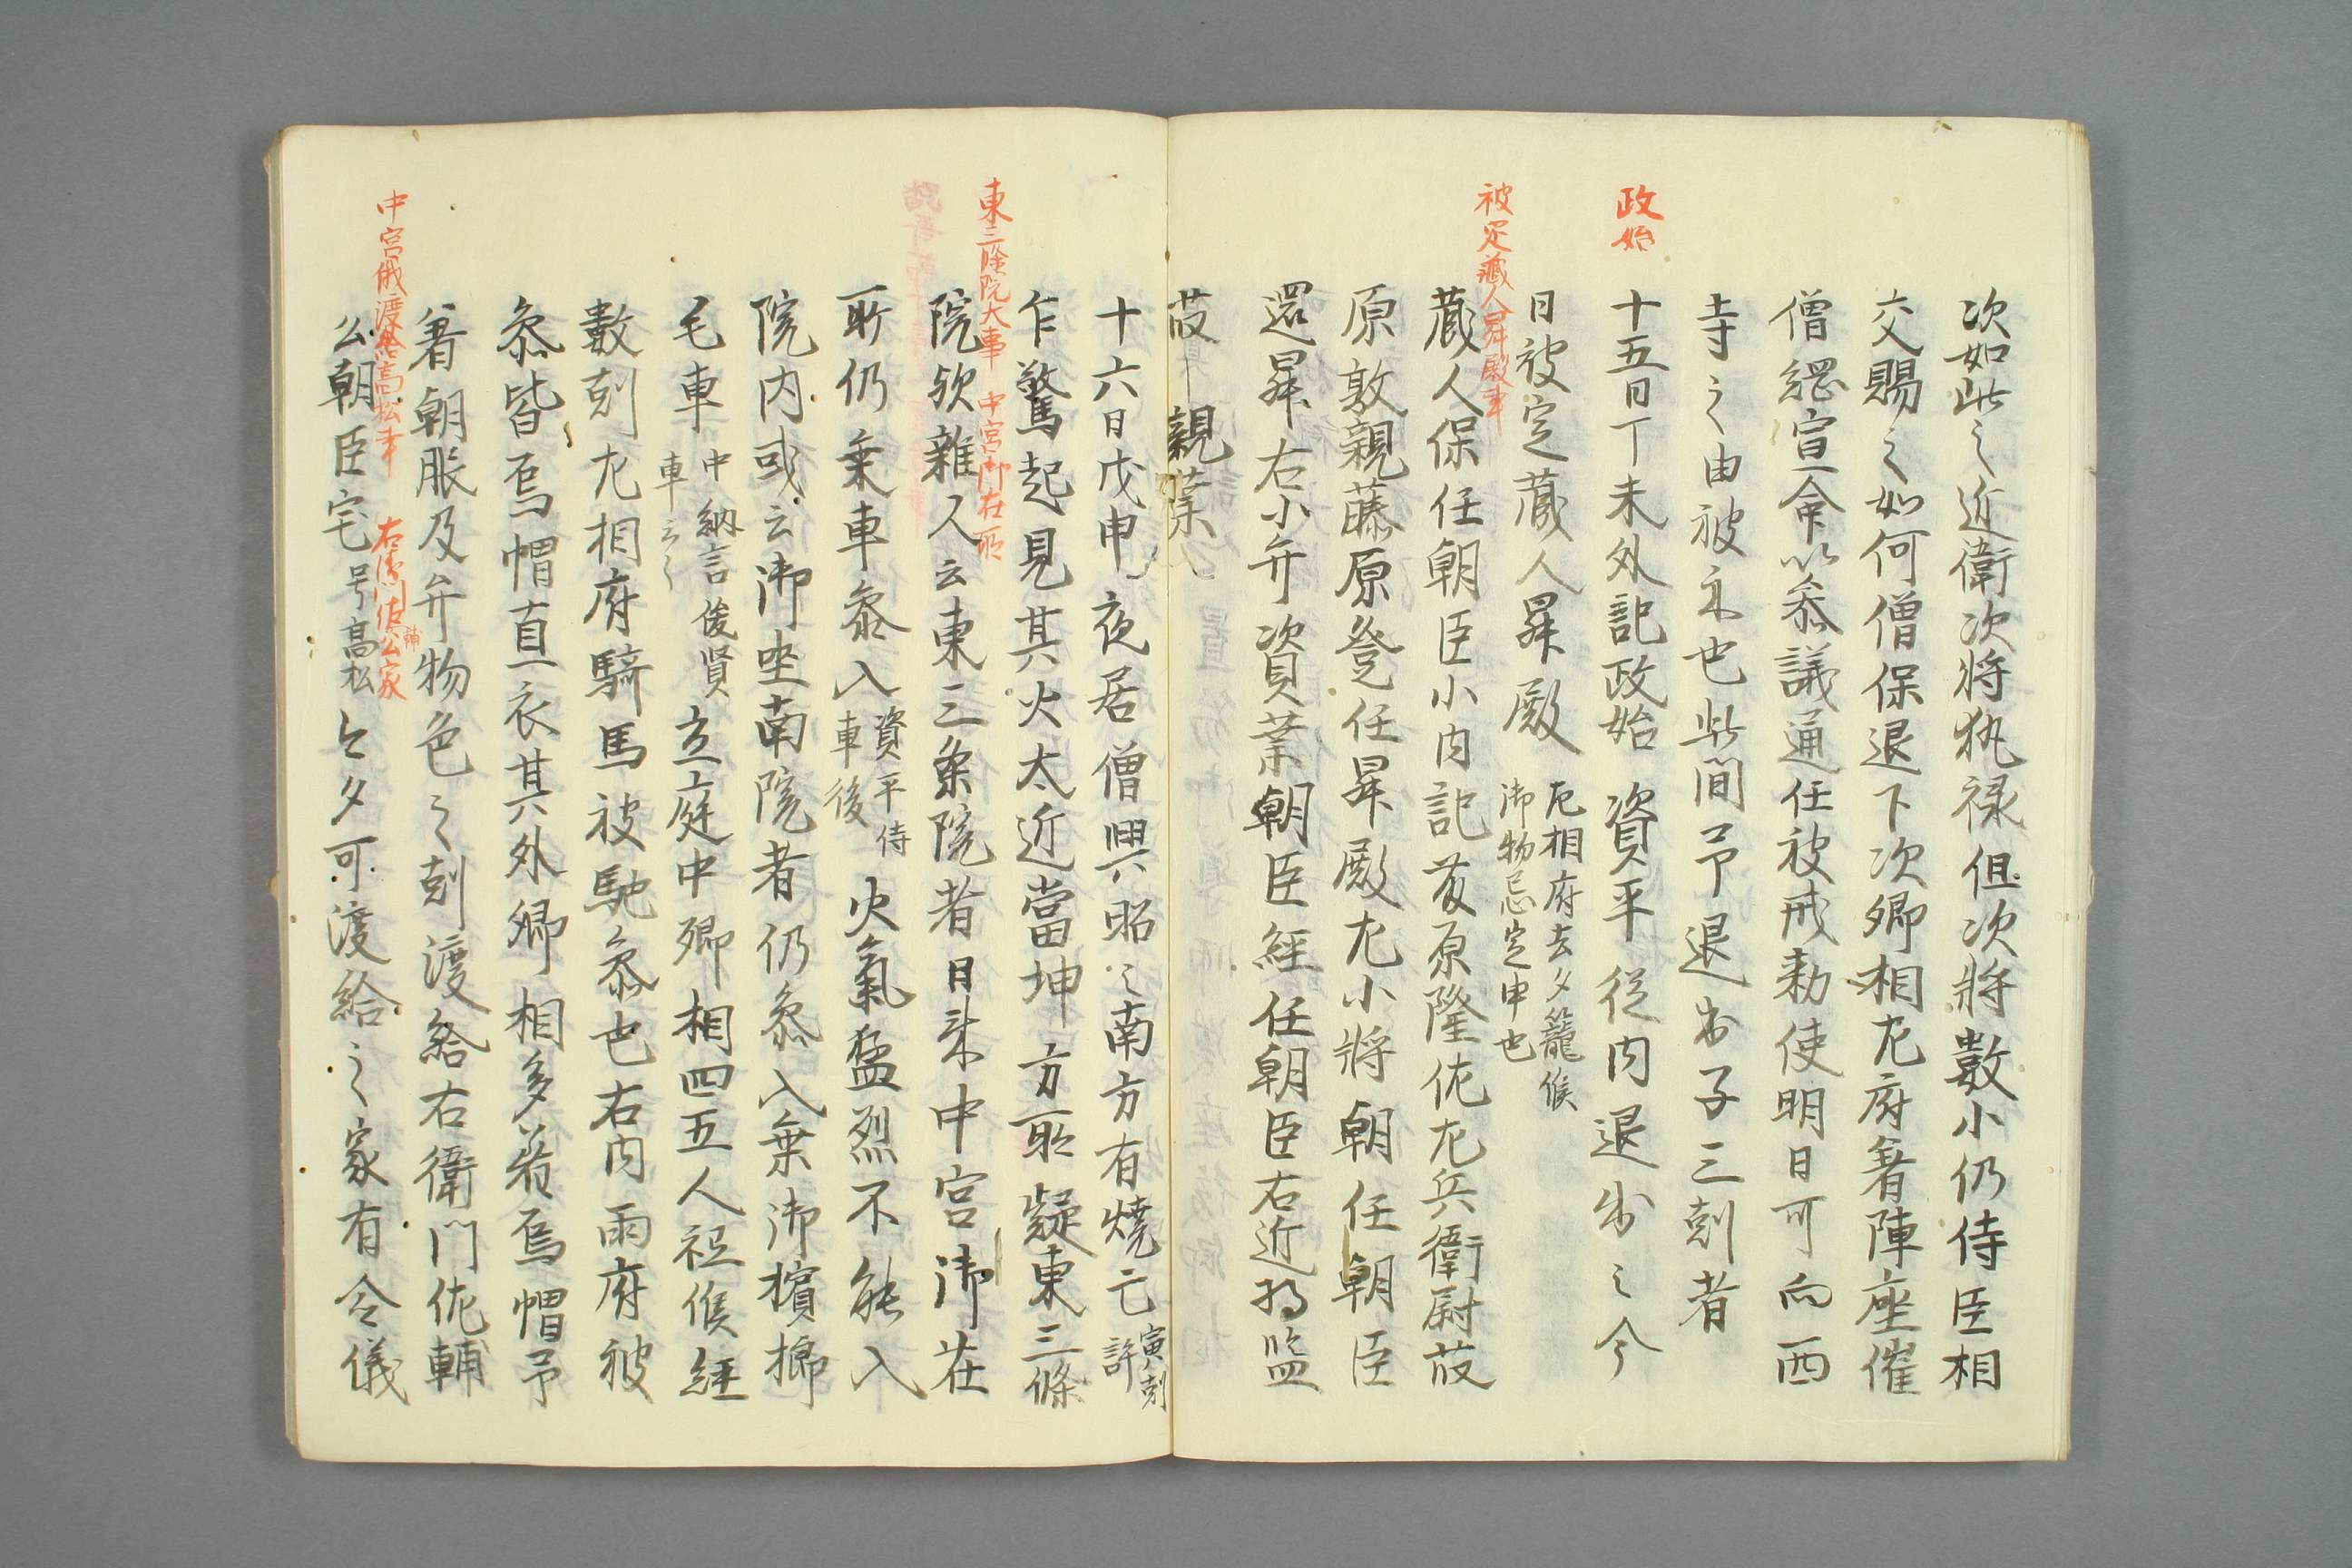 次如此之近衛次将執禄但次將數小仍侍臣相
交賜之如何僧保退下次卿相左府着陣座催
僧綱宣命以參議通任被戒勅使明日可向西
寺之由被示也此間予退出子三剋者
政始
十五日丁未外記政始資平從内退出之今
日被定蔵人昇殿
左相府去夕籠候
御物忌定申也
被定蔵人昇殿事
蔵人保任朝臣小内記藤原隆佐左兵衛尉藤
原敦親藤原登任昇殿左小將朝任朝臣
還昇右小弁資業朝臣経任朝臣右近将監
藤親業
十六日戊申夜居僧興昭之南方有燒亡
寅剋
許
乍驚起見其火太近當坤方所疑東三條
東三條院火事
中宮御在所
院欤雜人云東三条院者日来中宮御在
所仍乗車參入
資平侍
車後
火氣猛烈不能入
院内或云御坐南院者仍參入乗御檳榔
毛車
中納言俊賢
車云々
立庭中卿相四五人祗候経
數剋左相府騎馬被馳參也右内両府被
參皆烏帽直衣其外卿相多着烏帽予
着朝服及弁物色之剋渡給右衛門佐輔
公朝臣宅
号高松
今夕可渡給之家有令儀
中宮俄渡給高松事
右衛門佐輔公家